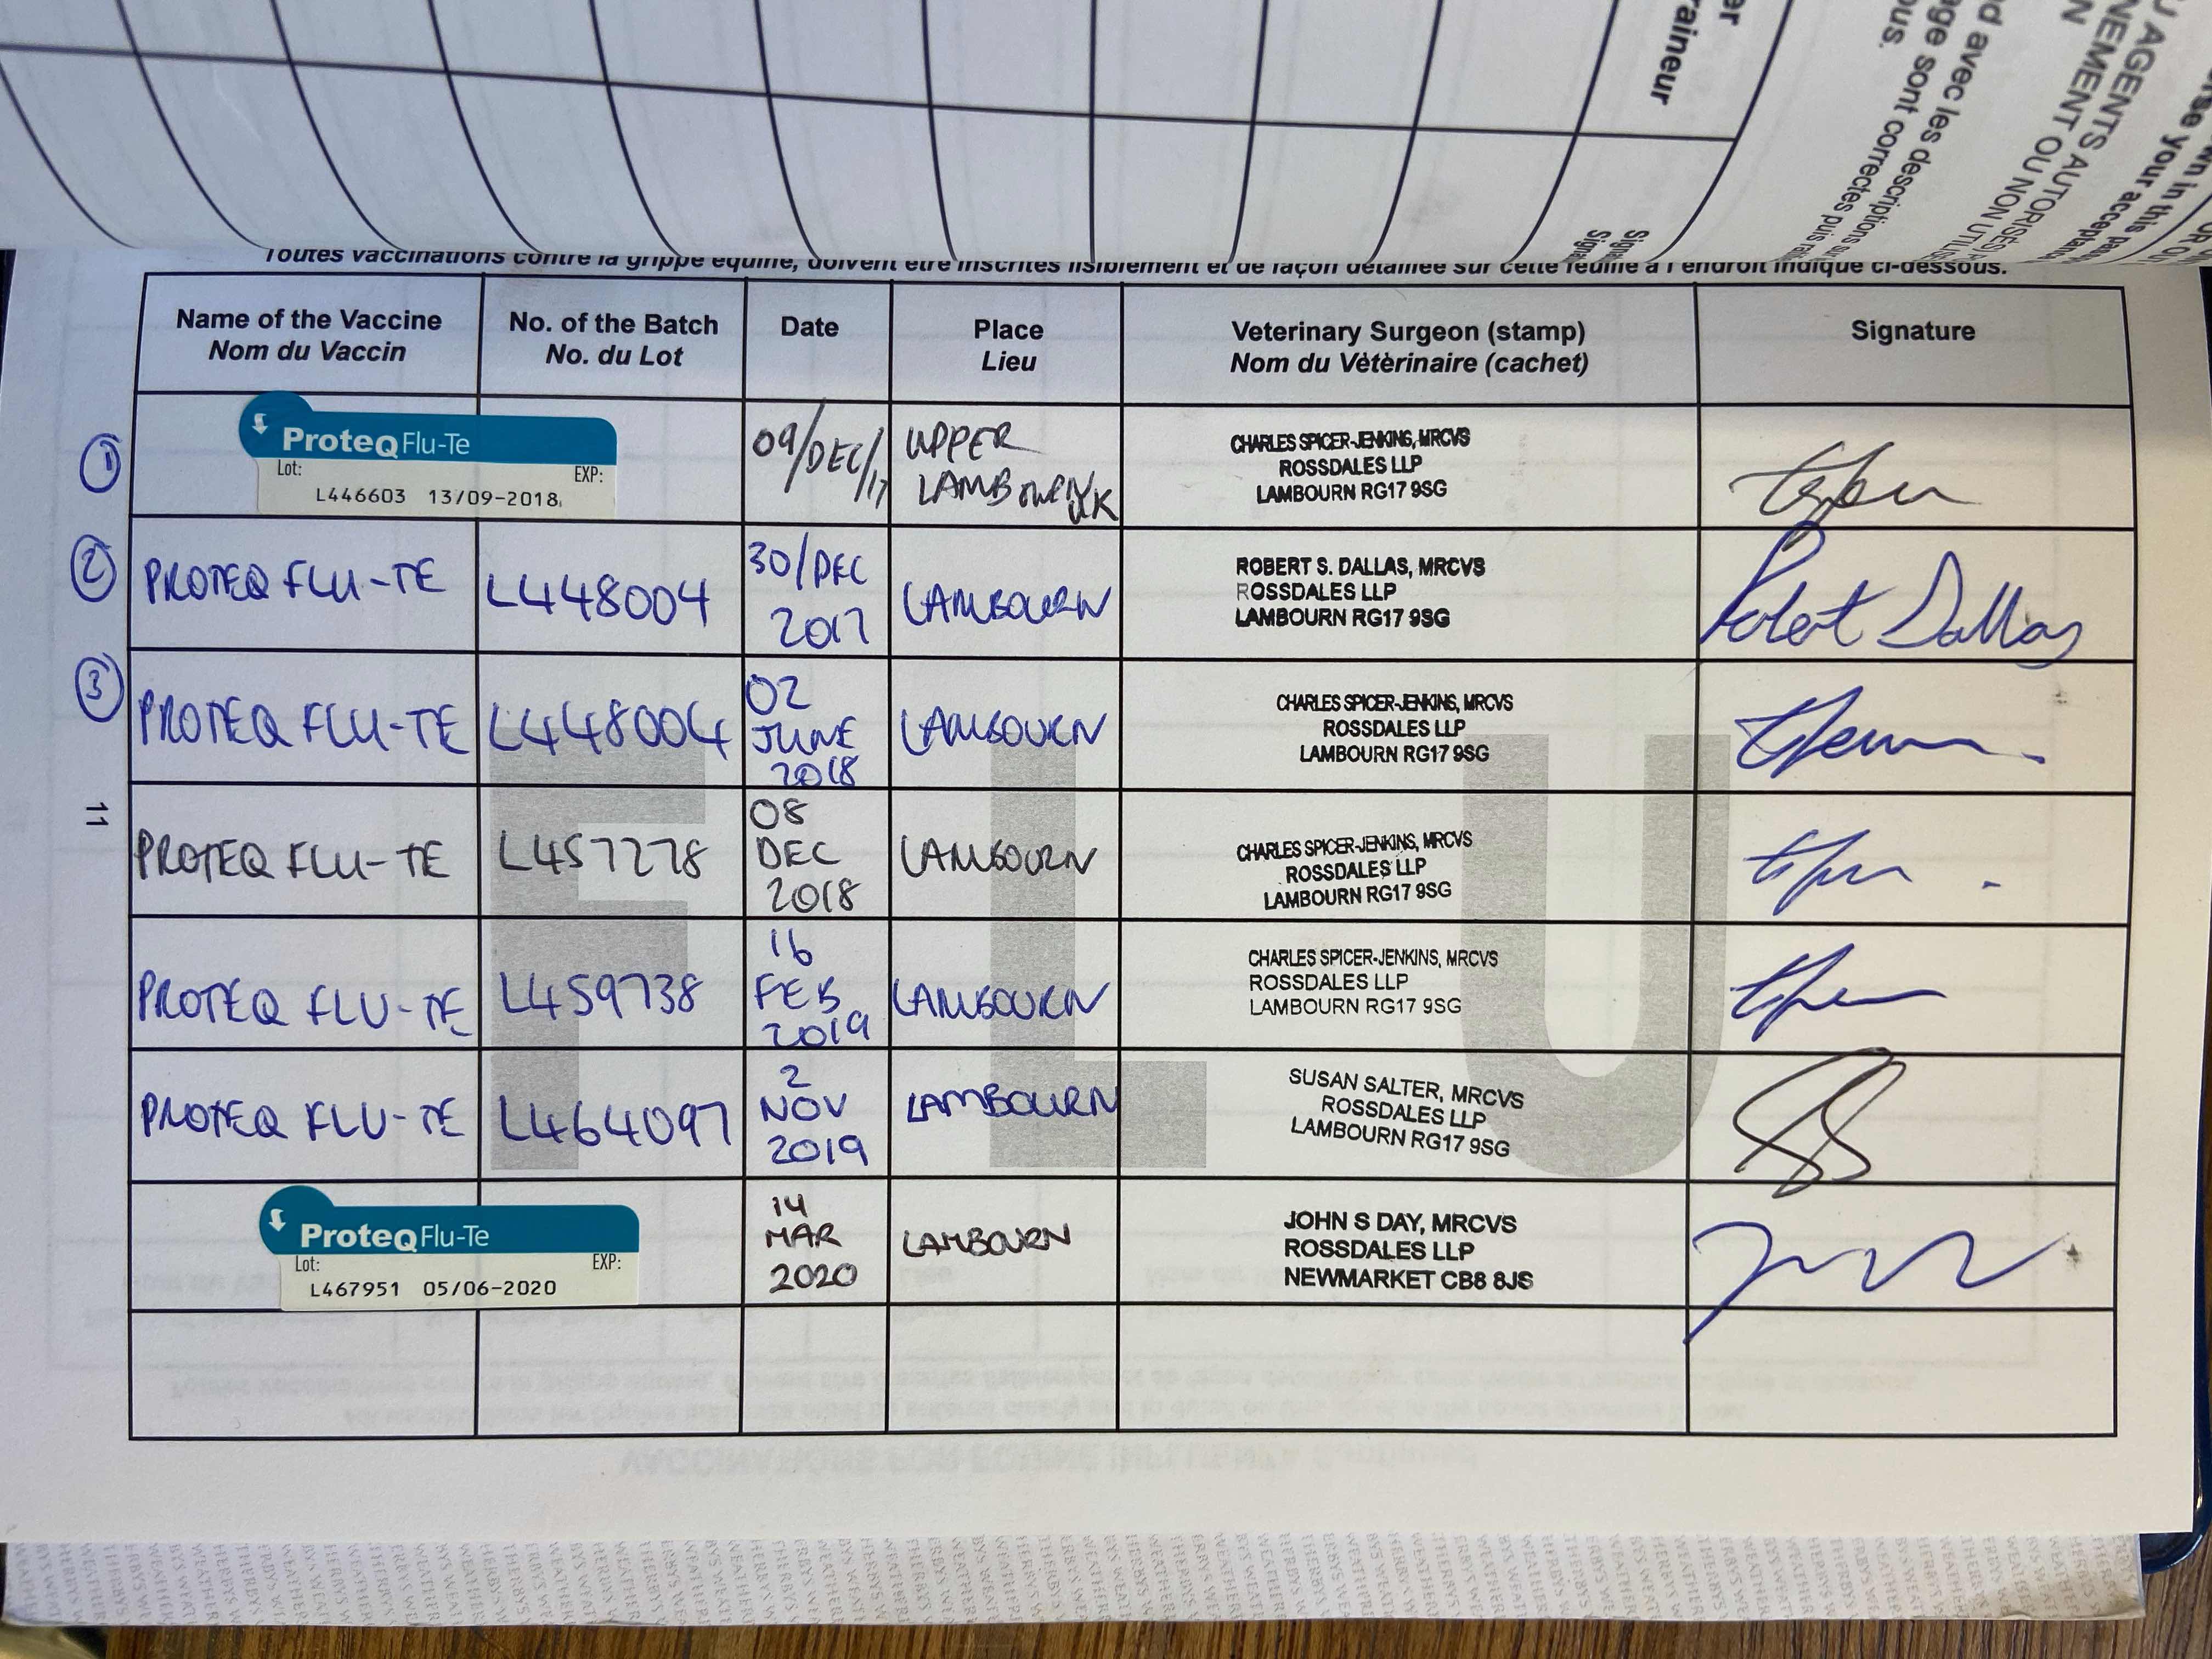 er
raineur
wn in this pass
rse your acceptanc
U AGENTS AUTORISÉS
NEMENT OU NON UTILISÉ
N
d avec les descriptions sur
age sont correctes puis
ous.
Toutes vaccinations contre la grippe équine, doivent être inscrites lisiblement et de façon détaillée sur cette feuille à l'endroit indiqué ci-dessous.
Name of the Vaccine
Nom du Vaccin
No. of the Batch
No. du Lot
Date
Place
Lieu
Veterinary Surgeon (stamp)
Nom du Vètèrinaire (cachet)
Signature
1
ProteqFlu-Te
Lot: EXP:
L446603 13/09-2018
09/DEC/17
UPPER
LAMBOURN UK
CHARLES SPICER-JENKINS, MRCVS
ROSSDALES LLP
LAMBOURN RG17 9SG
2
PROTEQ FLU-TE
L448004
30/DEC
2017
LAMBOURN
ROBERT S. DALLAS, MRCVS
ROSSDALES LLP
LAMBOURN RG17 9SG
Robert Dallas
3
PROTEQ FLU-TE
L448004
02
JUNE
2018
LAMBOURN
CHARLES SPICER-JENKINS, MRCVS
ROSSDALES LLP
LAMBOURN RG17 9SG
11
PROTEQ FLU-TE
L457278
08
DEC
2018
LAMBOURN
CHARLES SPICER-JENKINS, MRCVS
ROSSDALES LLP
LAMBOURN RG17 9SG
PROTEQ FLU-TE
L459738
16
FEB
2019
LAMBOURN
CHARLES SPICER-JENKINS, MRCVS
ROSSDALES LLP
LAMBOURN RG17 9SG
PROTEQ FLU-TE
L464097
2
NOV
2019
LAMBOURN
SUSAN SALTER, MRCVS
ROSSDALES LLP
LAMBOURN RG17 9SG
ProteqFlu-Te
Lot: EXP:
L467951 05/06-2020
14
MAR
2020
LAMBOURN
JOHN S DAY, MRCVS
ROSSDALES LLP
NEWMARKET CB8 8JS
FLU
VACCINATIONS FOR EQUINE INFLUENZA Continued